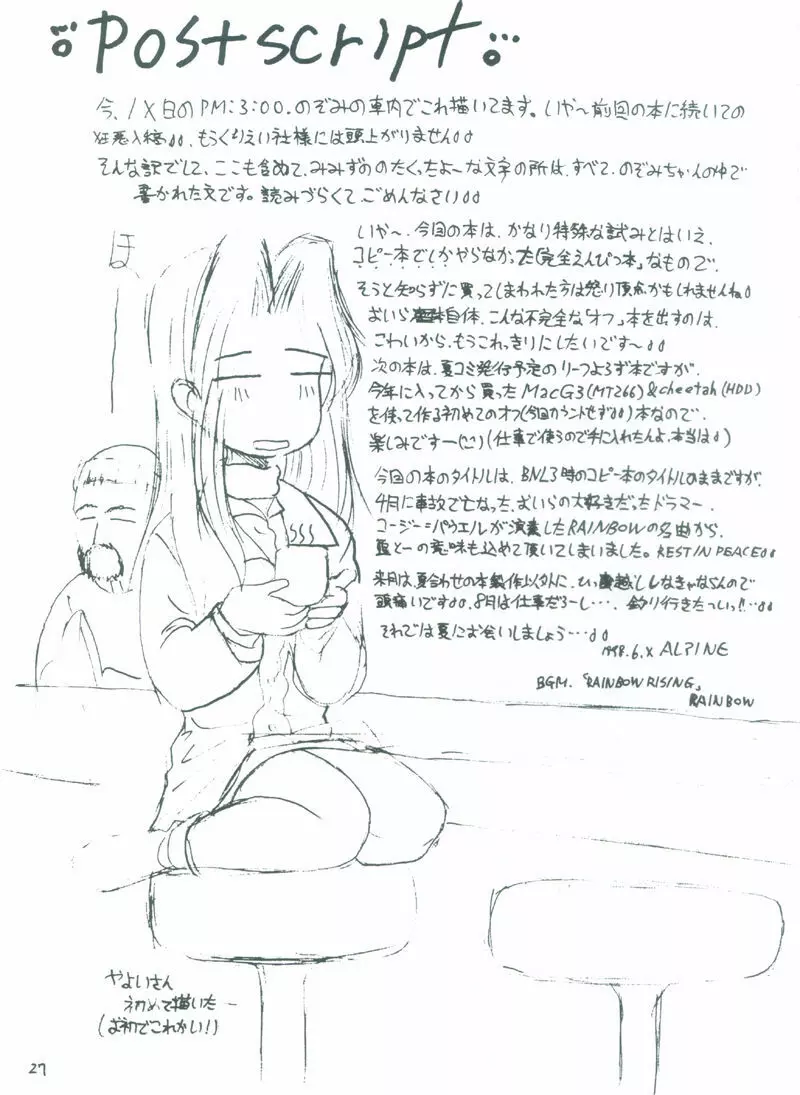 postscript
今、1X日のPM:3:00.のぞみの車内でこれ描いてます。いや〜前回の本に続いての
狂悪入稿 もうくりえい社様には頭上がりません
そんな訳でして、ここも含めて、みみずののたくったよーな文字の所は、すべて、のぞみちゃんの中で
書かれた文です。読みづらくてごめんなさい
ほ
いや〜、今回の本は、かなり特殊な試みとはいえ、
コピー本でしかやらなかった「完全えんぴつ本」なもので、
そうと知らずに買ってしまわれた方は怒り頂点かもしれませんね。
おいら自体、こんな不完全な「オフ」本を出すのは、
こわいから、もうこれっきりにしたいです〜
次の本は、夏コミ発行予定のリーフよろず本ですが、
今年に入ってから買ったMacG3(MT266)&cheetah(HDD)
を使って作る初めてのオフ(今回カウントせず)本なので、
楽しみですー(仕事で使うので手に入れたんよ、本当は)
今回の本のタイトルは、BNL3時のコピー本のタイトルのままですが、
4月に事故で亡なった、おいらの大好きだったドラマー、
コージー=パウエルが演奏したRAINBOWの名曲から、
追とーの意味も込めて頂いてしまいました。REST IN PEACE
来月は、夏合わせの本製作以外に、ひっ越ししなきゃならんので
頭痛いです、8月は仕事だろーし…、釣り行きたっいっ!!…
それでは夏にお会いしましょう…
1998.6.X ALPINE
BGM.「RAINBOW RISING」
RAINBOW
やよいさん
初めて描いた
(お初でこれかい!)
27